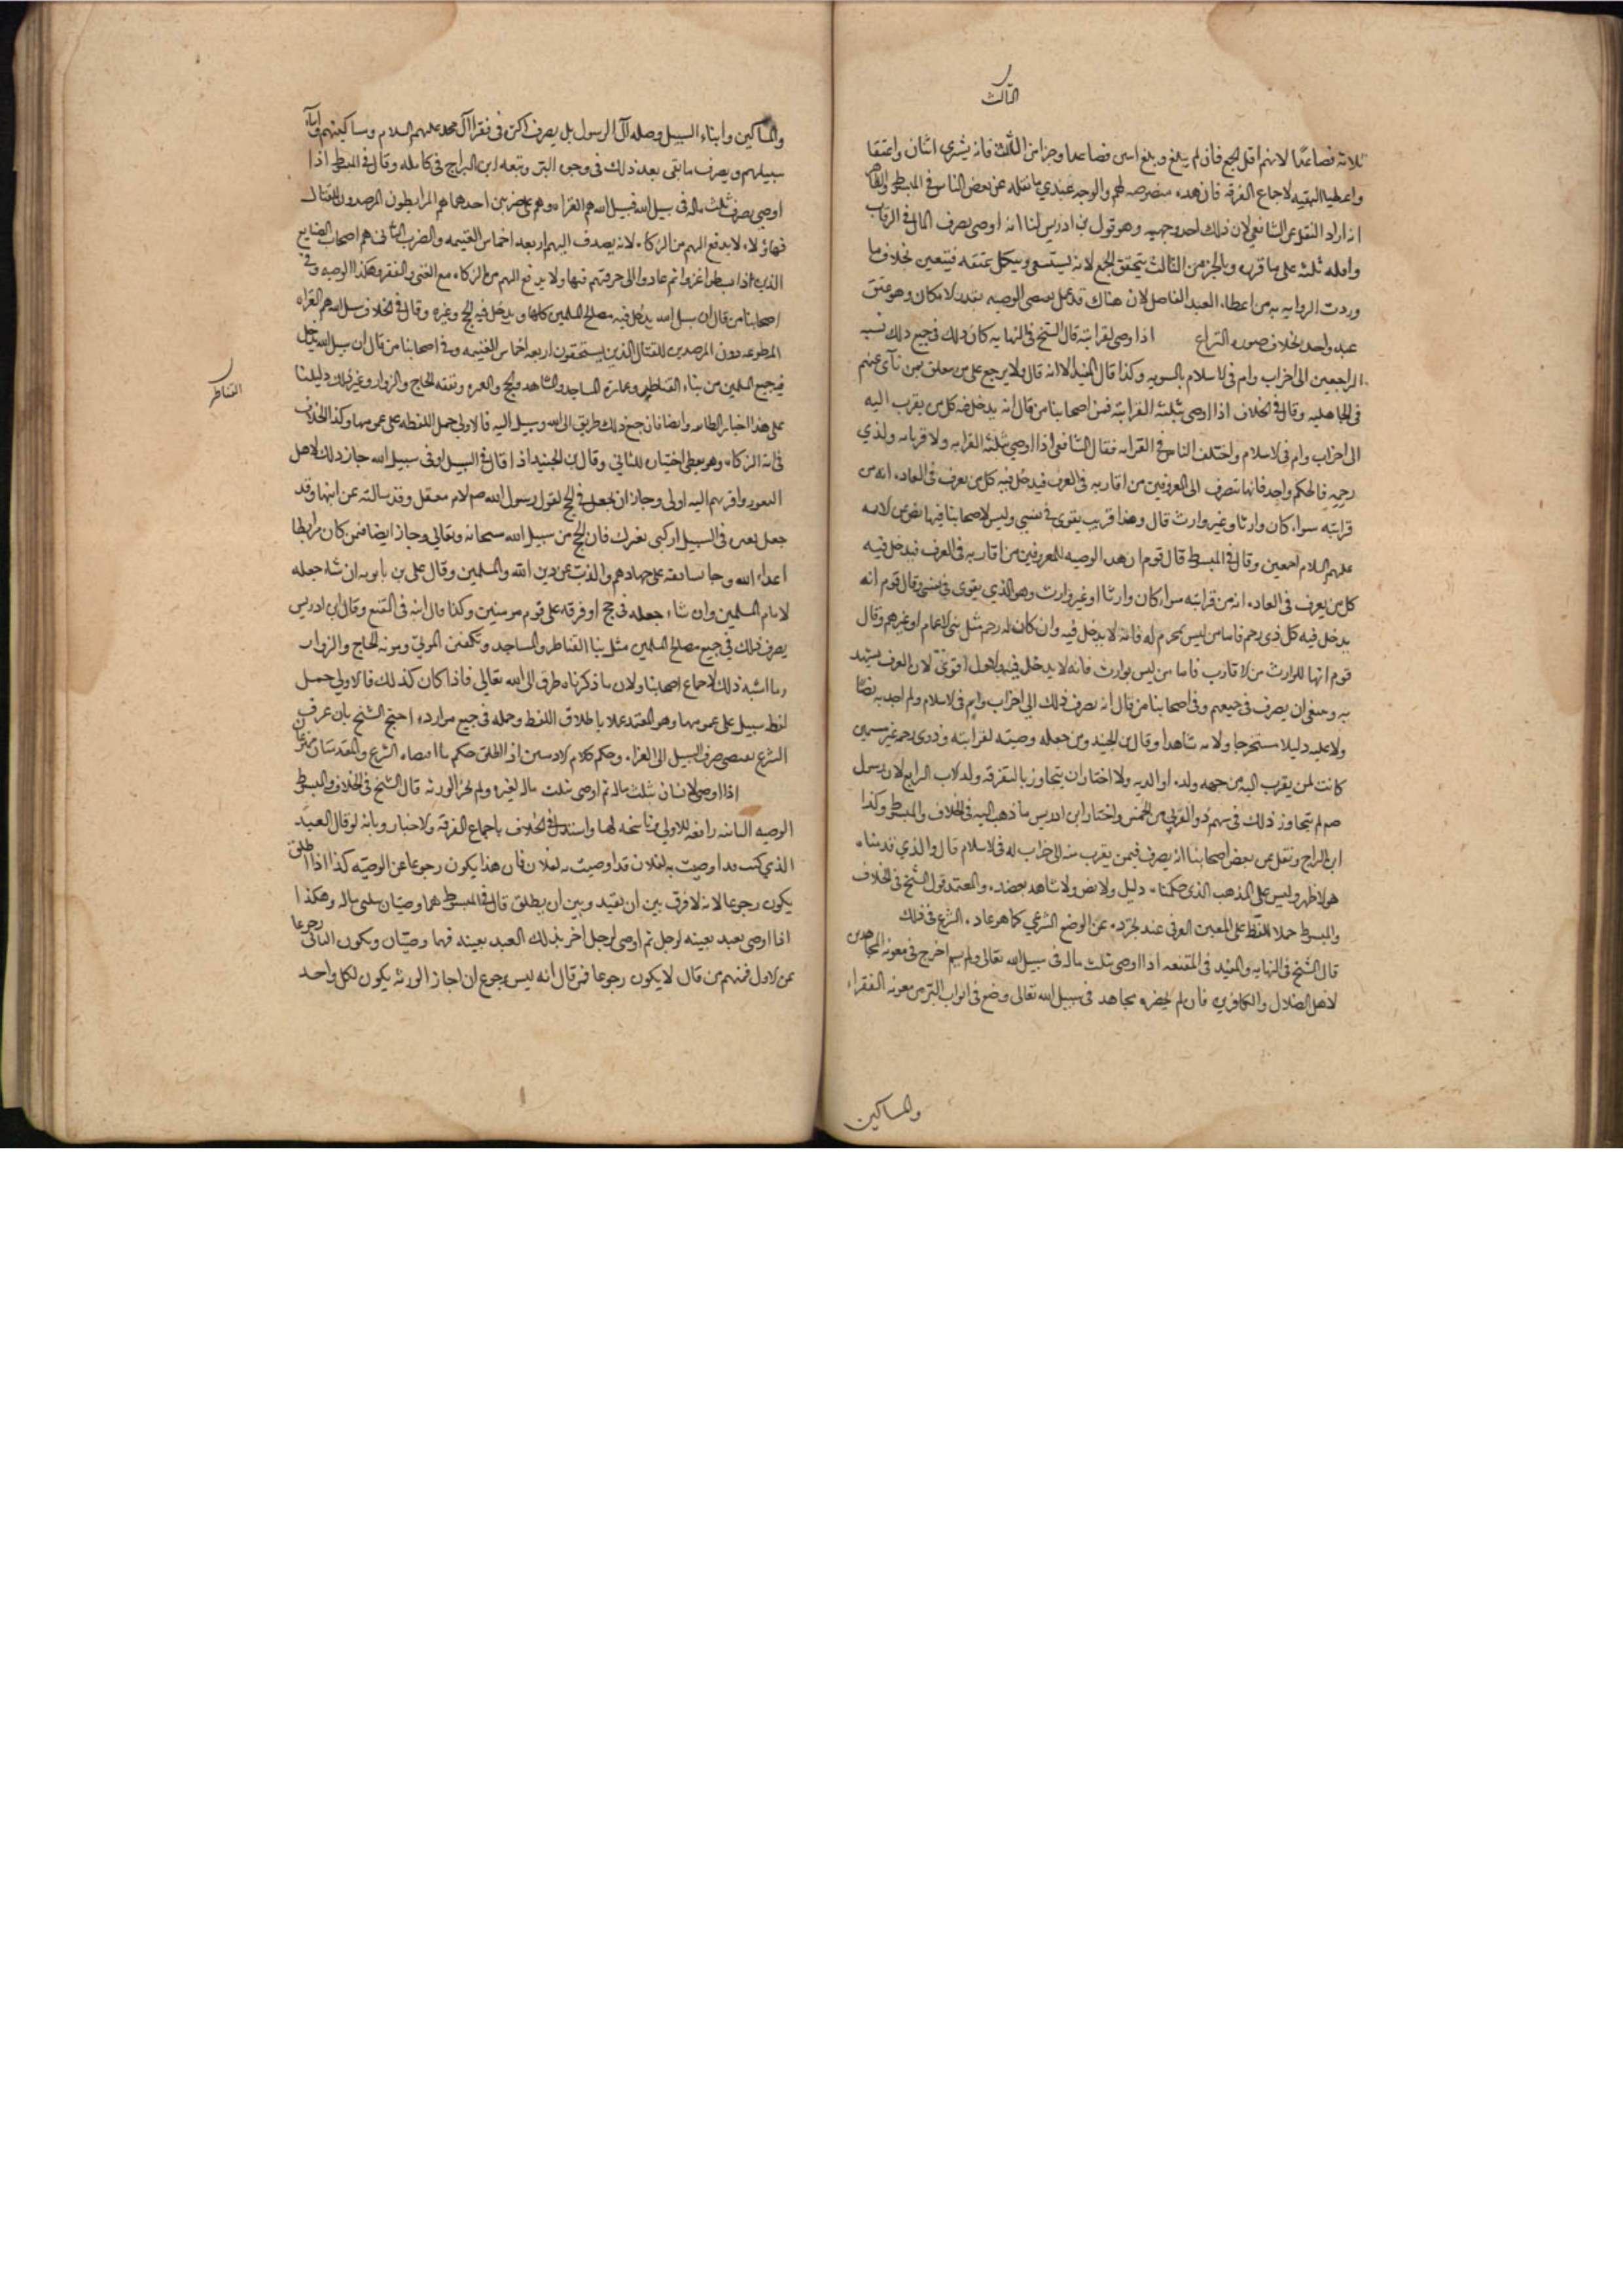 الثالث
ثلاثة فصاعدا لانهم اقل الجمع فان لم يبلغ وبلغ اثنين فصاعدا وجزا من الثالث فانه يشترى اثنان واعتقا
واعطيا البقيه لاجماع الفرقه فان هذه منصوصه لهم والوجه عندي ما نقله عن بعض الناس في المبسوط والظاهر
انه اراد النقل عن الشافعي لان ذلك احد وجهيه وهو قول بن ادريس لنا انه اوصى بصرف المال في الرقاب
واقله ثلثه على ما قرره وبالجز من الثالث يتحقق الجمع لانه يستسعى ويتكمل عتقه فيتعين بخلاف ما
وردت الروايه به من اعطاء العبد الفاضل لان هناك قد عمل بمقتضى الوصيه بقدر الامكان وهو عتق
عبد واحد بخلاف صوره النزاع اذا اوصى لقرابته قال الشيخ في النهايه كان ذلك في جميع ذلك نسبه
الراجعين الى اخراب وام في الاسلام بالسويه وكذا قال المفيد الا انه قال ولا يرجع على من معلق بمن نآى عنهم
في الجاهليه وقال في الخلاف اذا اوصى بثلثه لقرابته فمن اصحابنا من قال انه يدخل فيه كل من يقرب اليه
الى اخراب وام في الاسلام واختلف الناس في القرابه فقال الشافعي اذا اوصى بثلثه لقرابه ولاقربائه ولذي
رحمه فالحكم واحد فانها تنصرف الى المعروفين من اقاربه في العرف فيدخل فيه كل من يعرف في العاده انه من
قرابته سواء كان وارثا وغير وارث قال وهذا قريب يقوى في نفسي وليس لاصحابنا فيها نص عن الائمه
عليهم السلام اجمعين وقال في المبسوط قال قوم ان هذه الوصيه للمعروفين من اقاربه في العرف فيدخل فيه
كل من يعرف في العاده انه من قرابته سواء كان وارثا او غير وارث وهو الذي يقوى في نفسي وقال قوم انه
يدخل فيه كل ذي رحم فاما من ليس بمحرم له فانه لا يدخل فيه وان كان له رحم مثل بني الاعمام او غيرهم وقال
قوم انها للوارث من الاقارب فاما من ليس بوارث فانه لا يدخل فيه والاول اقوى لان العرف يشهد
به وينبغي ان يصرف في جميعهم وفي اصحابنا من قال انه يصرف ذلك الى اخراب وام في الاسلام ولم اجد به نصا
ولا عليه دليلا مستخرجا ولا به شاهدا وقال بن الجنيد ومن جعله وصيته لقرابته وذوى رحمه غير مسمين
كانت لمن يقرب اليه من جهه ولده او الديه ولا اختار ان يتجاوز بالتفرقه ولد الاب الرابع لان رسول
صم لم يتجاوز ذلك في سهم ذوالقربي من الخمس واختار ابن ادريس ما ذهب اليه في الخلاف والمبسوط وكذا
ابن البراج ونقل عن بعض اصحابنا انه يصرف فيمن يقرب منه الى اخراب له في الاسلام قال والذي قدمناه
هو الاظهر وليس على المذهب الذي حكيناه دليل ولا نص ولا شاهد يعضده والمعتمد قول الشيخ في الخلاف
والمبسوط حملا للفظ على المعنى العرفي عند تجرده عن الوضع الشرعي كما هو عاده الشرع في ذلك
قال الشيخ في النهايه والمفيد في المقنعه اذا اوصى بثلث ماله في سبيل الله تعالى ولم يسم اخرج في معونه المجاهدين
لاهل الضلال والكافرين فان لم يحضره مجاهد في سبيل الله تعالى وضع في ابواب البر من معونه الفقراء
والمساكين
والمساكين وابناء السبيل وصله آل الرسول بل يصرف اكثره في فقرا آل محمد عليهم السلام ومساكينهم وابناء
سبيلهم ويصرف ما بقى بعد ذلك في وجوه البر وتبعه ابن البراج في كامله وقال في المبسوط اذا
اوصى بصرف ثلث ماله في سبيل الله فسبيل الله هم الغزاه وهم على ضربين احدهما هم المرابطون المرصدون للقتال
فهاؤلاء لا يدفع اليهم من الزكاه لانه يصرف اليهم اربعه اخماس الغنيمه والضرب الثاني هم اصحاب الصنايع
الذين اذا نبسطوا غزوا ثم عادوا الى حرفتهم فهاولا يدفع اليهم من الزكاه مع الغنى والفقر وهكذا الوصيه وفي
اصحابنا من قال ان سبيل الله يدخل فيه مصالح المسلمين كلها ويدخل فيه الحج وغيره وقال في الخلاف سبيل الله هم الغزاه
المطوعه دون المرصدين للقتال الذين يستحقون اربعه اخماس الغنيمه وفي اصحابنا من قال ان سبيل الله يدخل
فيه جميع المسلمين من بناء القناطر وعمارة المساجد والمشاهد والحج والعمره ونفقه الحاج والزوار وغير ذلك ودليلنا
القناطر
على هذا اخبار الطائفه وايضا فان جميع ذلك طريق الى الله وسبيل اليه فالاولى حمل اللفظه على عمومها وكذا الخلاف
في ايه الزكاه وهو يعطي اختيار الثاني وقال بن الجنيد اذا قال في السبيل او في سبيل الله جاز ذلك لاهل
الثغور واقربهم اليه اولى وجاز ان يجعل في الحج لقول رسول الله صم لام معقل وقد سالته عن ابنها وقد
جعل بعيره في السبيل اركبي بعيرك فان الحج من سبيل الله سبحانه وتعالى وجاز ايضا فمن كان مرابطا
اعداء الله وحابسا نفسه على جهادهم والذب عن دين الله والمسلمين وقال على بن بابويه ان شاء جعله
لامام المسلمين وان شاء جعله في حج او فرقه على قوم مومنين وكذا قال ابنه في المقنع وقال ابن ادريس
يصرف ذلك في جميع مصالح المسلمين مثل بنا القناطر والمساجد وتكفين الموتي ومونه الحاج والزوار
وما اشبه ذلك لاجماع اصحابنا ولان ما ذكرناه طرق الى الله تعالى فاذا كان كذلك فالاولى حمل
لفظ سبيل على عمومها وهو المعتمد عملا باطلاق اللفظ وحمله في جميع موارده احتج الشيخ بان عرف
الشرع يقتضي صرف السبيل الى الغزاه وحكم كلام الادميين اذا اطلق حكم ما اقتضاه الشرع والمقدمتان ممنوعتان
اذا اوصى لانسان بثلث ماله ثم اوصى بثلث ماله لغيره ولم تجز الورثه قال الشيخ في الخلاف والمبسوط
الوصيه الثانيه رافعه للاولى وناسخه لها واستدل في الخلاف باجماع الفرقه والاخبار وبانه لو قال العبد
الذي كنت قد اوصيت به لفلان قد اوصيت به لفلان فان هذا يكون رجوعا عن الوصيه كذا اذا اطلق
يكون رجوعا لانه لا فرق بين ان يقيد وبين ان يطلق قال في المبسوط هما وصيتان بثلثي ماله وهكذا
اذا اوصى بعبد بعينه لرجل ثم اوصى لرجل اخر بذلك العبد بعينه فهما وصيتان ويكون الثاني رجوعا
عن الاول فمنهم من قال لا يكون رجوعا فمن قال انه ليس برجوع ان اجاز الورثه يكون لكل واحد